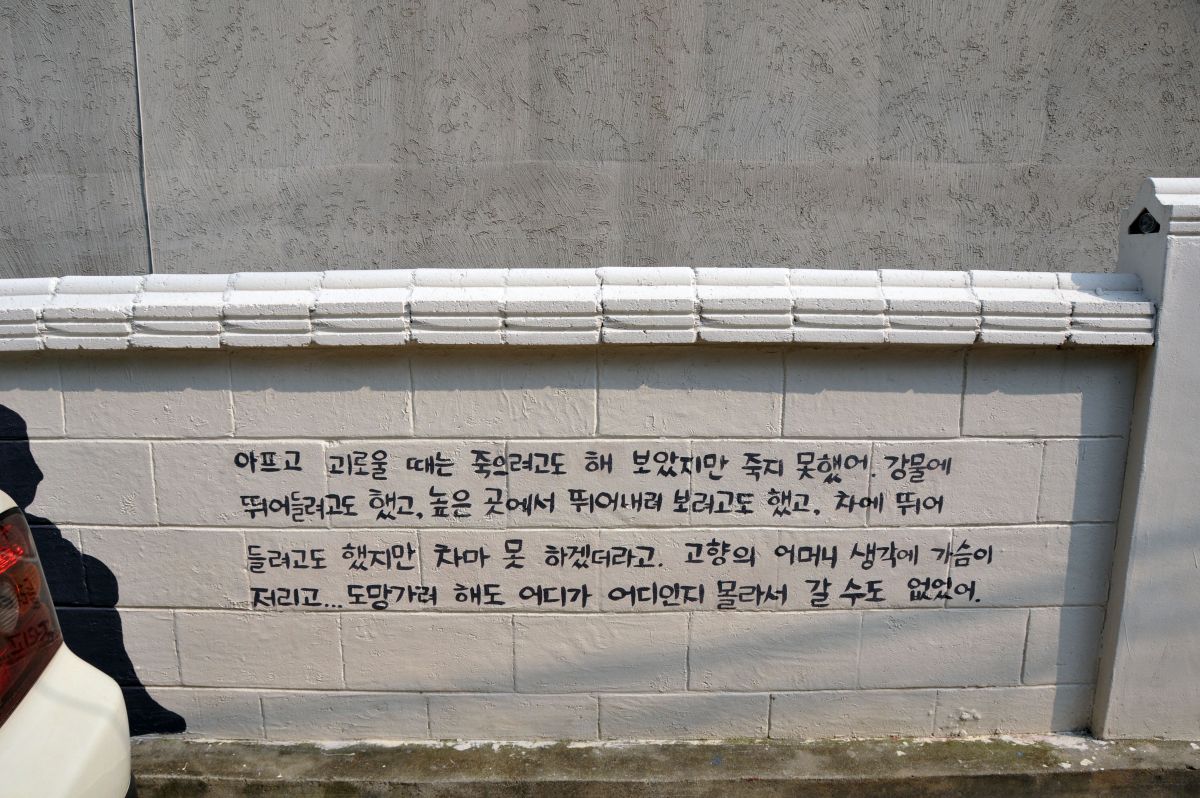 아프고 괴로울 때는 죽으려고도 해 보았지만 죽지 못했어. 강물에
뛰어들려고도 했고, 높은 곳에서 뛰어내려 보려고도 했고, 차에 뛰어
들려고도 했지만 차마 못 하겠더라고. 고향의 어머니 생각에 가슴이
저리고... 도망가려 해도 어디가 어디인지 몰라서 갈 수도 없었어.